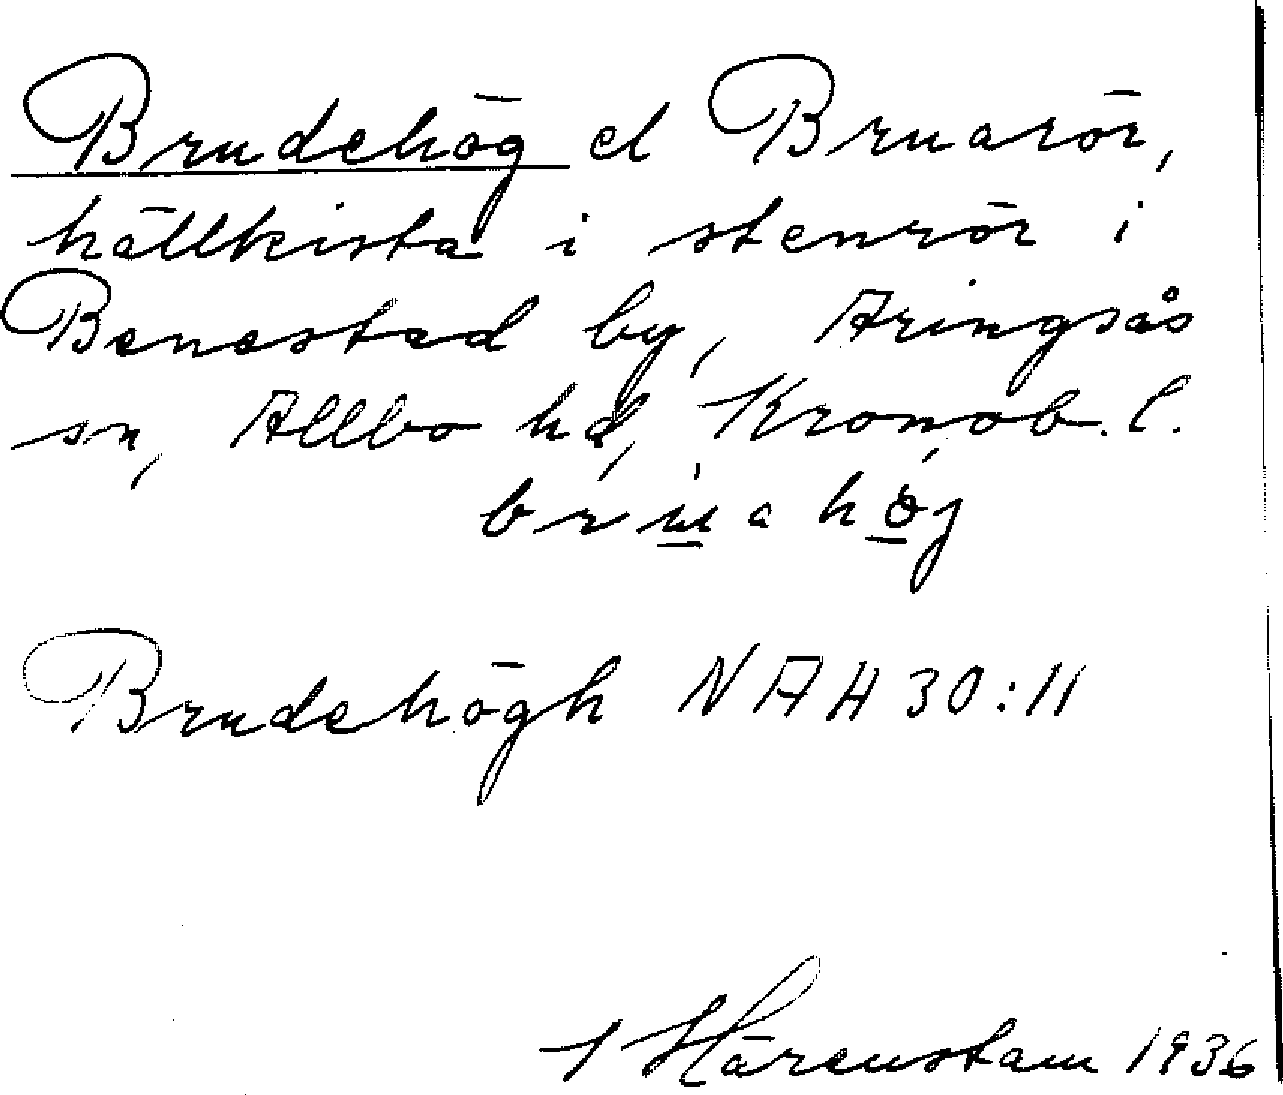 Brudehög el Bruarör,
hällkista i stenrör i
Benestad by, Aringsås
sn, Allbo hd, Kronob. l.
bruahöj
Brudehögh NAH 30:11
Härenstam 1936